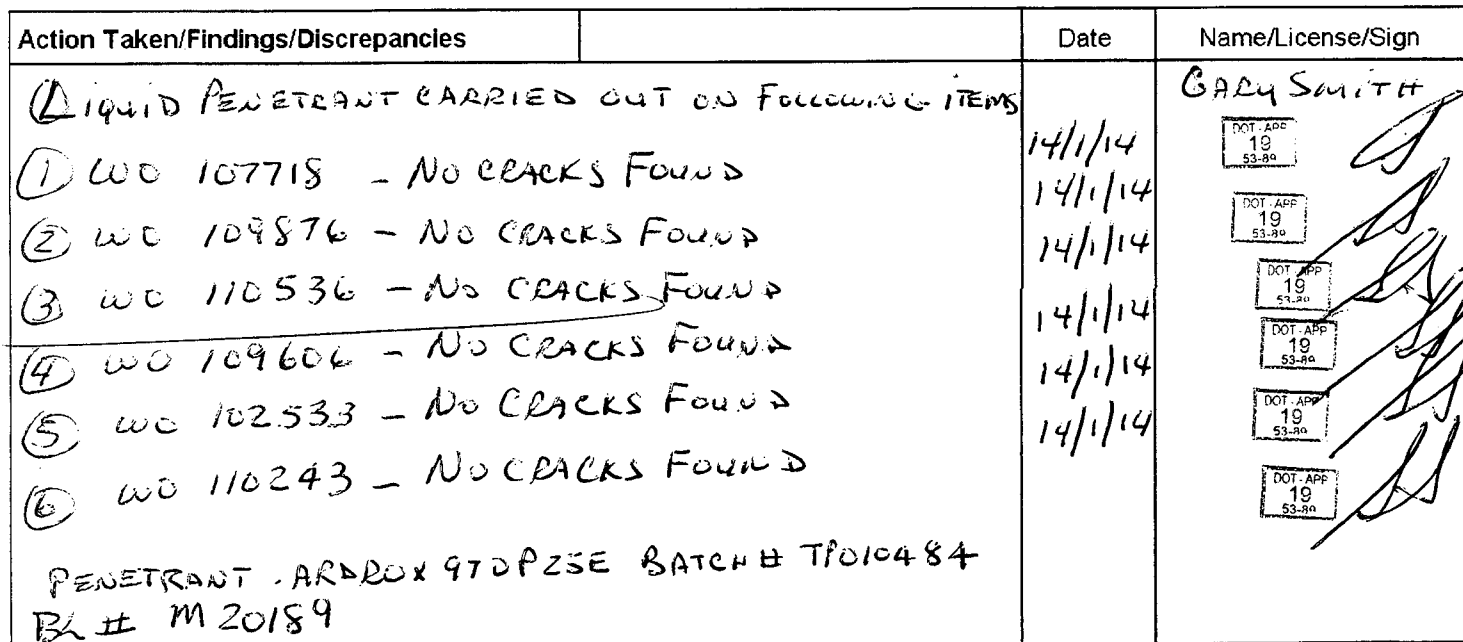 Action Taken/Findings/Discrepancies Date Name/License/Sign
LIQUID PENETRANT CARRIED OUT ON FOLLOWING ITEMS GARY SMITH
1 WO 107718 - NO CRACKS FOUND 14/1/14 DOT-APP 19 53-89
2 WO 109876 - NO CRACKS FOUND 14/1/14 DOT-APP 19 53-89
3 WO 110536 - NO CRACKS FOUND 14/1/14 DOT-APP 19 53-89
4 WO 109606 - NO CRACKS FOUND 14/1/14 DOT-APP 19 53-89
5 WO 102533 - NO CRACKS FOUND 14/1/14 DOT-APP 19 53-89
6 WO 110243 - NO CRACKS FOUND 14/1/14 DOT-APP 19 53-89
PENETRANT. ARDROX 970P25E BATCH# TP010484
# M20189